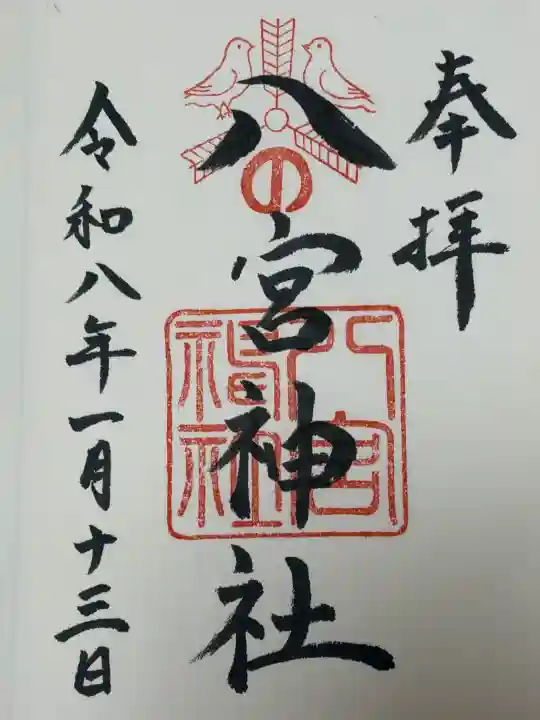 奉拝
八宮神社
の
八宮神社
令和八年一月十三日